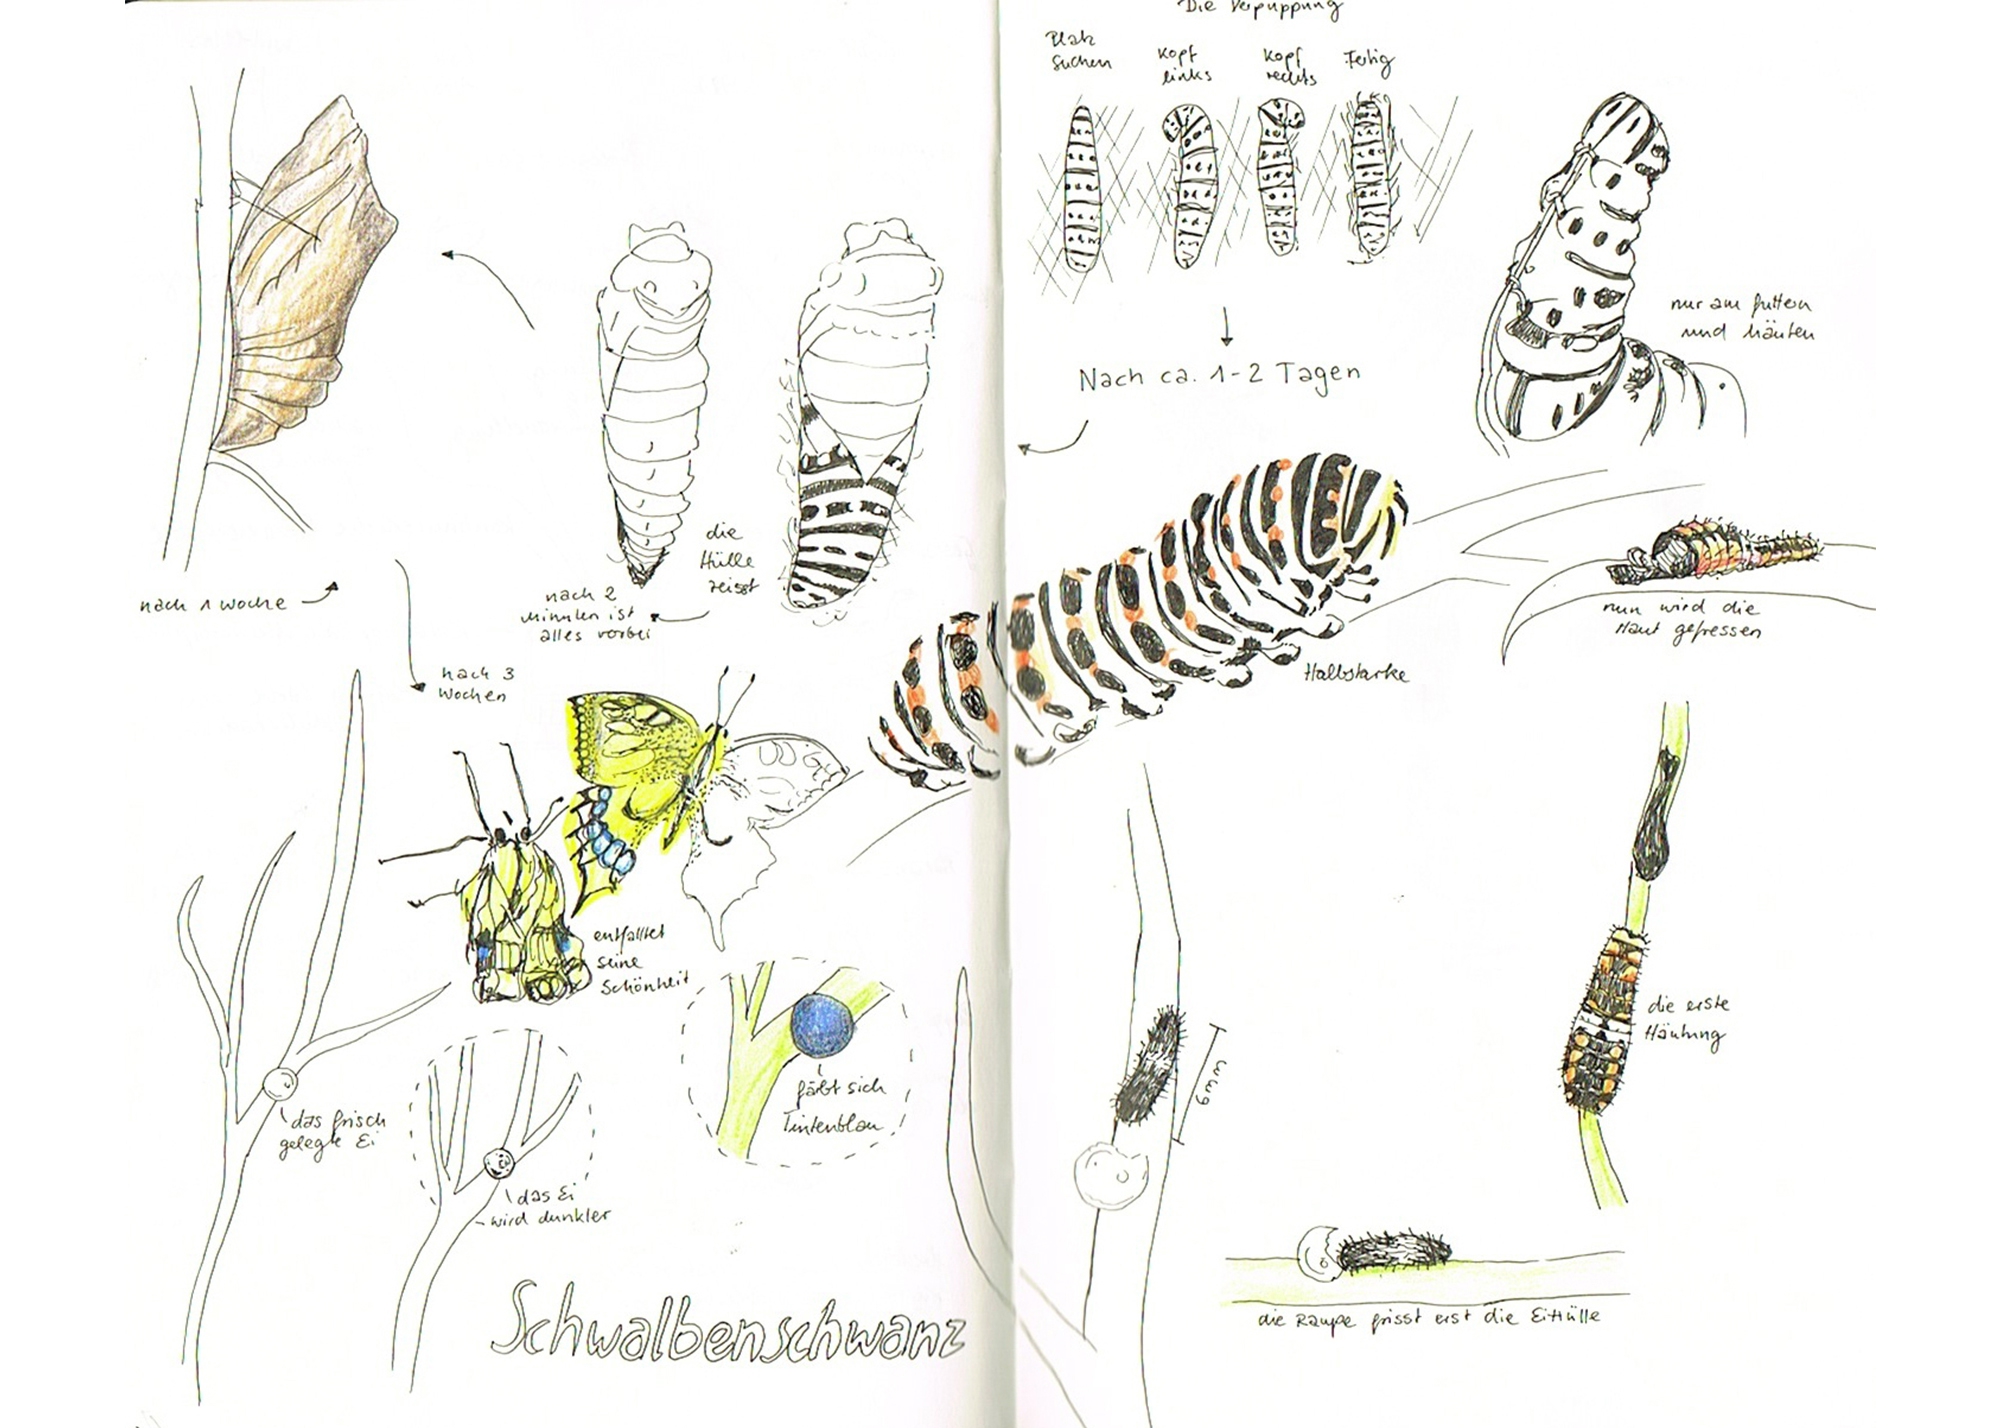 Die Verpuppung
Platz
suchen
Kopf
links
Kopf
rechts
Fertig
nur am futtern
und häuten
Nach ca. 1-2 Tagen
die
Hülle
reisst
nach 2
Minuten ist
alles vorbei
nach 1 Woche
nach 3
Wochen
Halbstarke
nun wird die
Haut gefressen
entfalltet
seine
Schönheit
die erste
Häutung
färbt sich
Tintenblau
6mm
das frisch
gelegte Ei
das Ei
wird dunkler
die Raupe frisst erst die EiHülle
Schwalbenschwanz